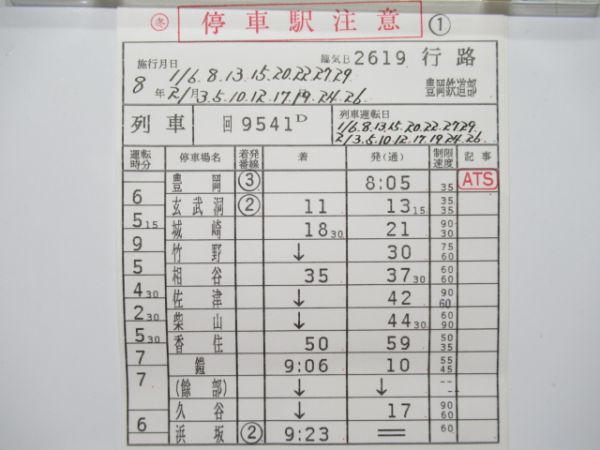 冬 停車駅注意 ①
施行月日 臨気B2619 行路
8年 1/6.8.13.15.20.22.27.29 豊岡鉄道部
2/月3.5.10.12.17.19.24.26
列車 回9541D 列車運転日
1/6.8.13.15.20.22.27.29
2/3.5.10.12.17.19.24.26
運転時分 停車場名 着発番線 着 発(通) 制限速度 記事
豊岡 ③ 8:05 35 ATS
6
玄武洞 ② 11 13 15 35 35
5 15
城崎 18 30 21 90 30
9
竹野 ↓ 30 75 60
5
相谷 35 37 30 60 60
4 30
佐津 ↓ 42 90 60
2 30
柴山 ↓ 44 30 60 90
5 30
香住 50 59 50 35
7
鎧 9:06 10 55 45
7
(餘部) ↓ ↓ -- --
久谷 ↓ 17 90 60
6
浜坂 ② 9:23 = 60